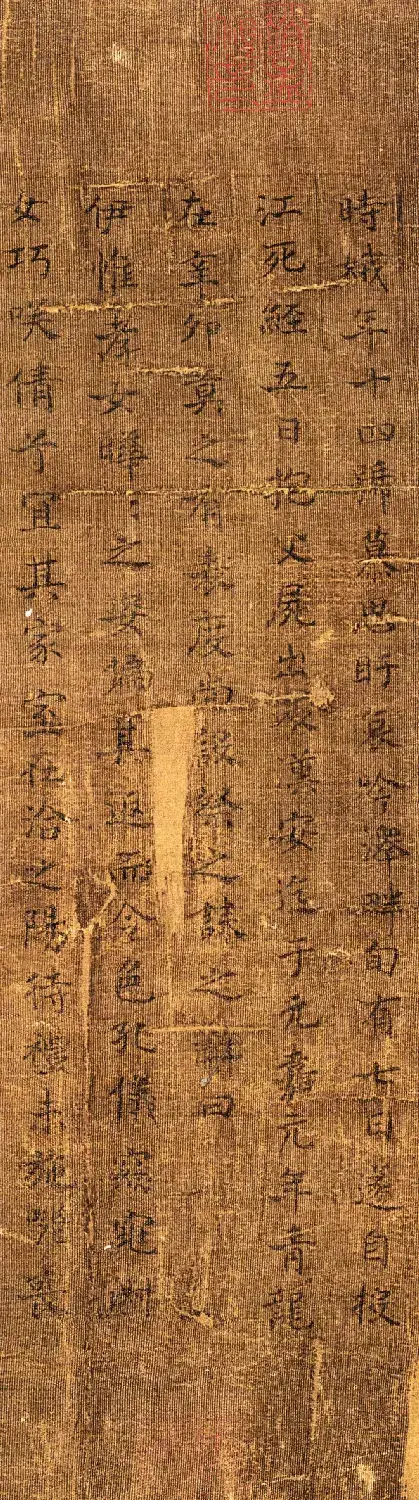 時娥年十四號慕思盱哀吟澤畔旬有七日遂自投
江死經五日抱父屍出以漢安迄于元嘉元年青龍
在辛卯莫之有表度尚設祭之誄之辭曰
伊惟孝女曄〻之姿偏其返而令色孔儀窈窕淑
女巧咲倩兮宜其家室在洽之陽待禮未施嗟喪